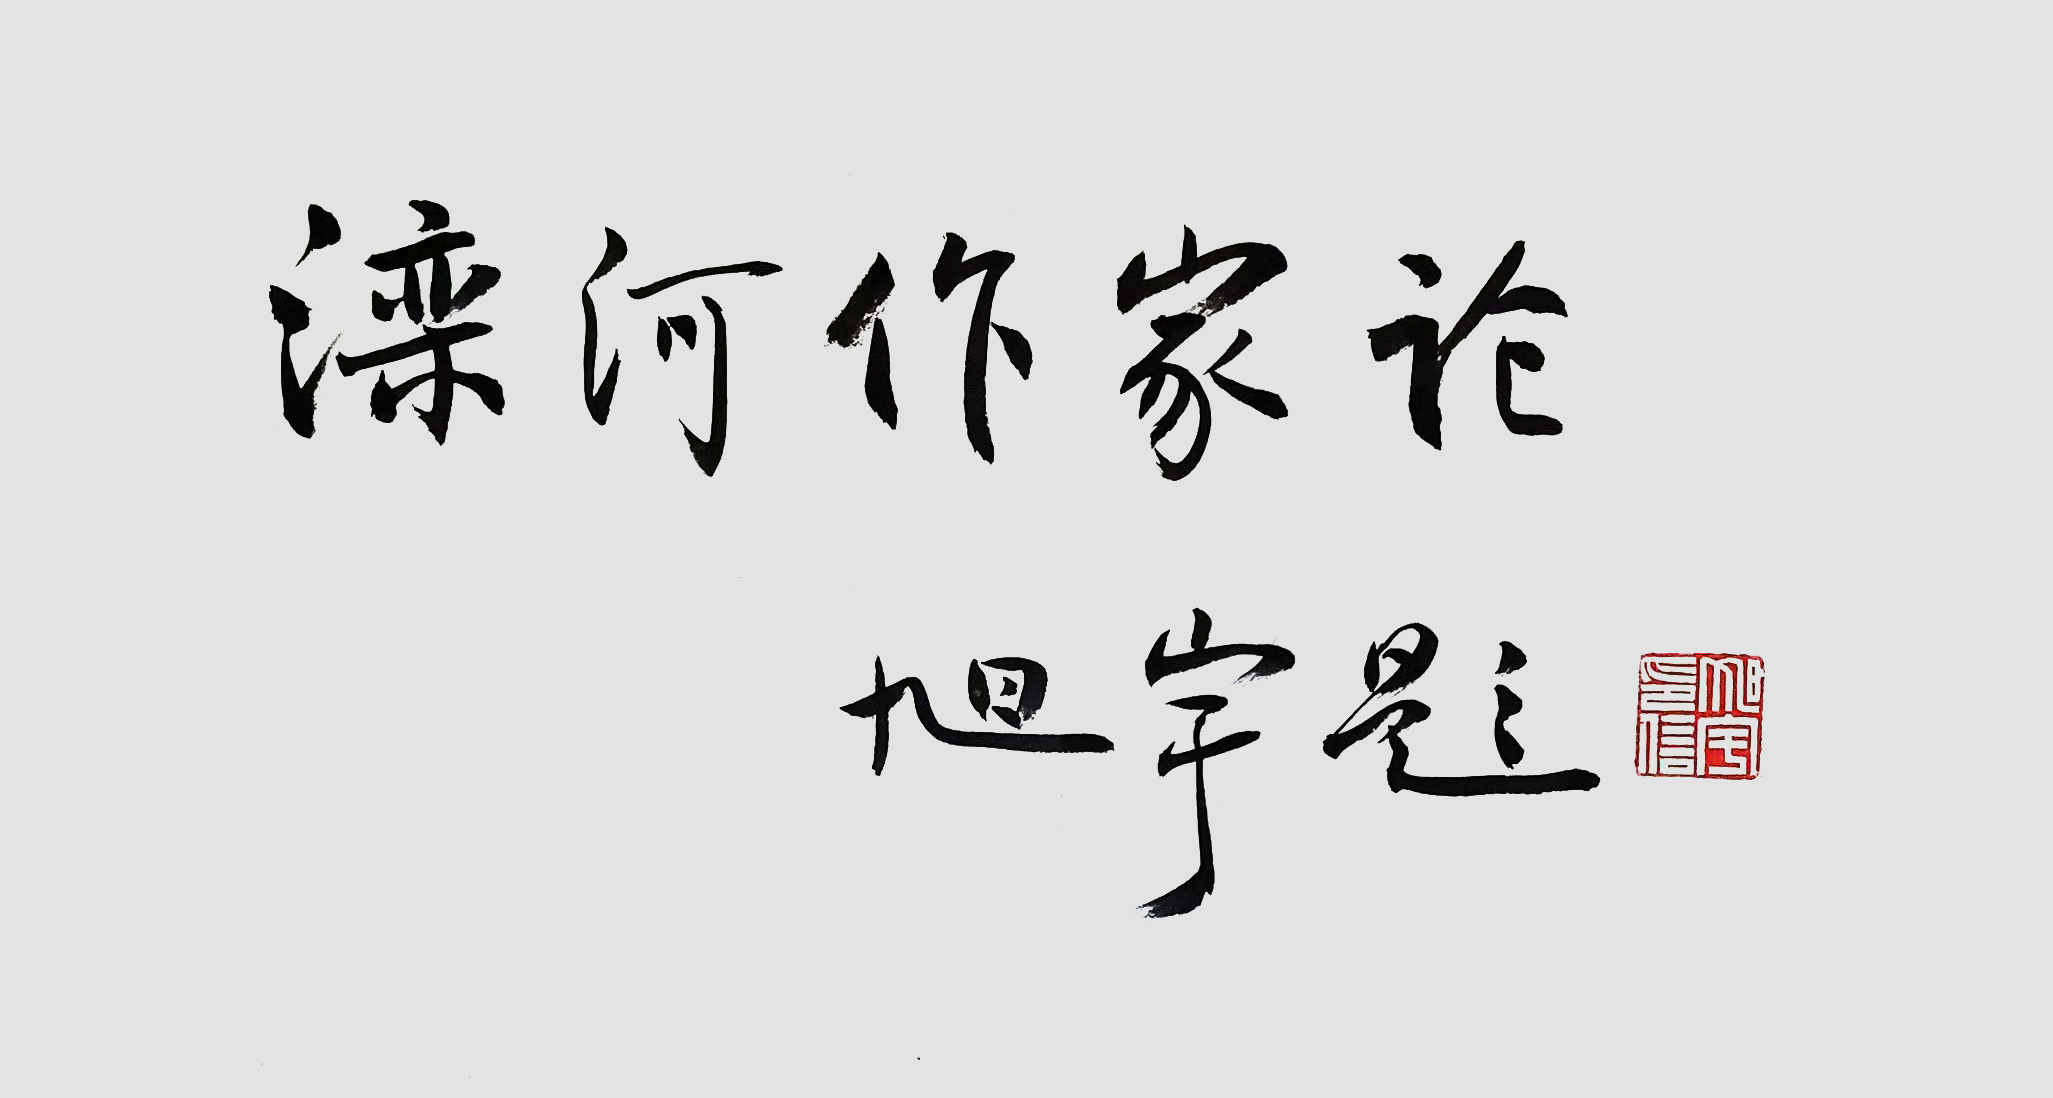 滦河作家论
旭宇题
旭宇信印